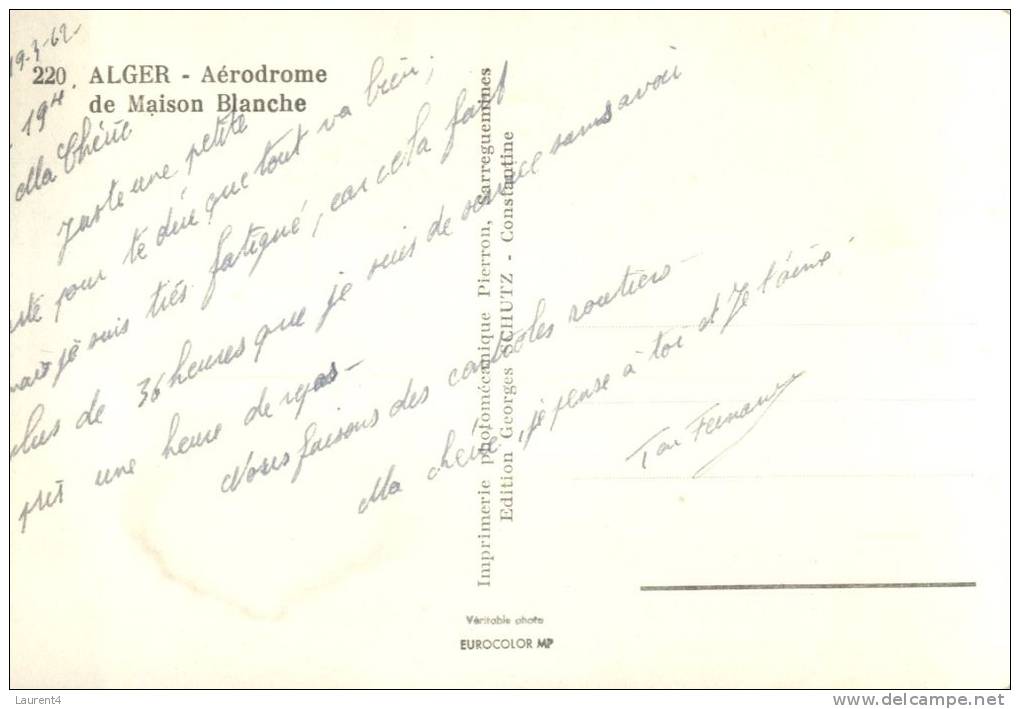 19-3-62-
220. ALGER - Aérodrome
de Maison Blanche
19H
Ma Chérie
Juste une petite
carte pour te dire que tout va bien,
mais je suis très fatigué, car cela fait
plus de 36 heures que je suis de service sans avoir
pris une heure de repos-
Nous faisons des contrôles routiers-
Ma chérie, je pense à toi et Je t'aime
Ton Fernand
Imprimerie photomécanique Pierron, Sarreguemines
Edition Georges SCHUTZ - Constantine
Véritable photo
EUROCOLOR MP
Laurent4
http://www.delcampe.net